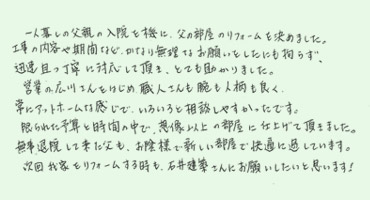 一人暮しの父親の入院を機に、父の部屋のリフォームを決めました。
工事の内容や期間など、かなり無理なお願いをしたにも拘らず、
迅速且つ丁寧に対応して頂き、とても助かりました。
営業の広川さんをはじめ、職人さんも腕も人柄も良く、
常にアットホームな感じで、いろいろと相談しやすかったです。
限られた予算と時間の中で、想像以上の部屋に仕上げて頂きました。
無事退院して来た父も、お陰様で新しい部屋で快適に過しています。
次回我家をリフォームする時も、石井建築さんにお願いしたいと思います!